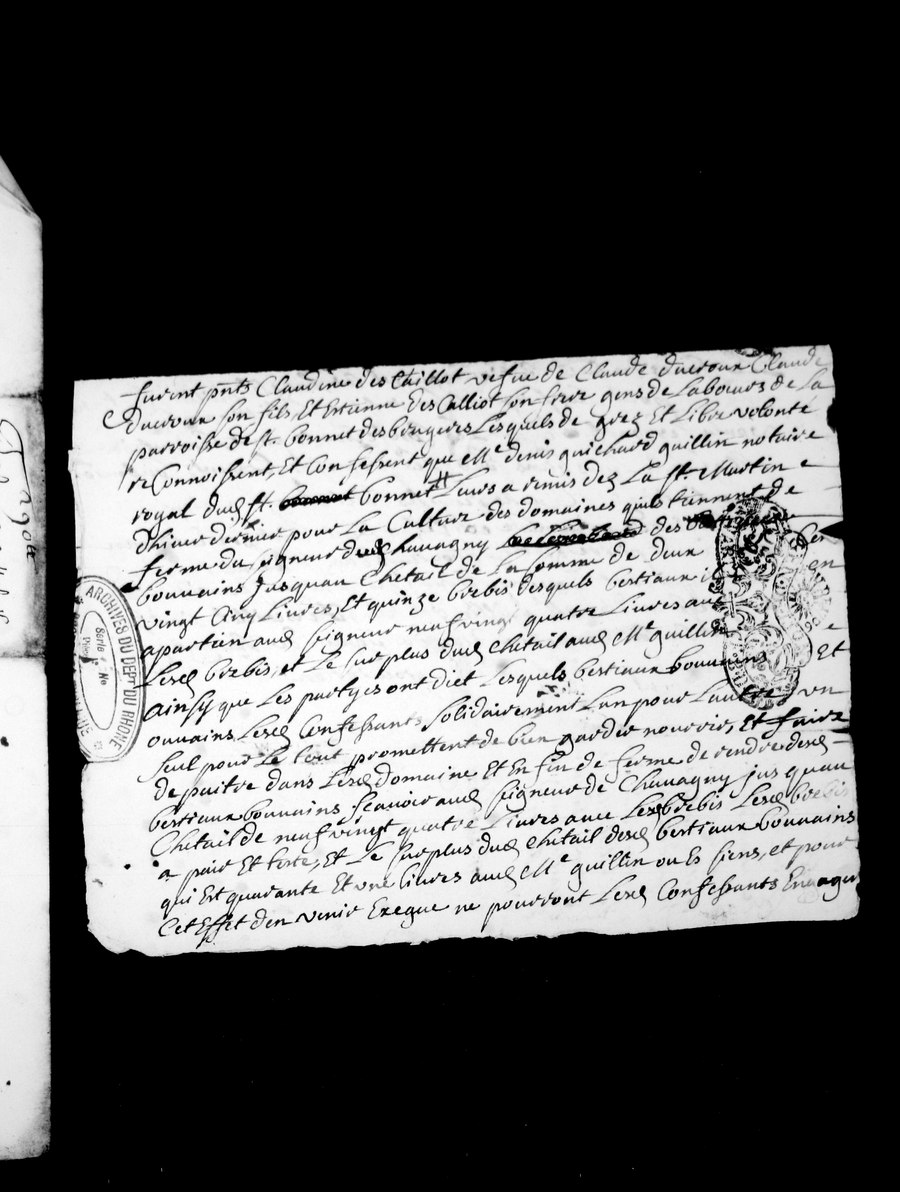 furent pnts Claudine des Caillot vefue de Claude ducroux Claude
ducroux son fils, Et Estienne des Calliot son frere gens de Laboeurs de La
parroisse de st. bonnet des bruyeres Lesquels de grez Et Libre volonté
reConnoissent, Et Confessent que Me denis quichard guillin notaire
royal dud st. bonnet Leurs a remis dez La st. Martin
d'hiuer dernier pour La Culture des domaines quils tiennent de
ferme du seigneur de Chauagny des
bouuains Jusquau Chetail de La somme de deux
vingt Cinq Liures, Et quinze brebis desquels bertiaux il en
apartien aud seigneur neuf vingt quatre Liures auec
Lesd brebis, et Le surplus dud Chetail aud Me guillin
ainsy que Les partyes ont diet Lesquels bertiaux bouuains Et
ouuains Lesd Confessants solidairement Lun pour Lautre un
seul pour Le tout promettent de bien garder nourrir, Et faire
depaitre dans Lesd domaine Et En fin de ferme de rendre desd
bertiaux bouuains scauoir aud seigneur de Chauagny jusquau
Chetail de neuf vingt quatre Liures auec Lesd brebis Lesd brebis
a pair Et forte, Et Le surplus dud Chetail desd bertiaux bouuains
qui Est quarante Et une liures aud Me guillin ou Es siens, et pour
Cet Effet d'en venir Exegue ne pourront Lesd Confessants En
ARCHIVES DU DEPT DU RHONE
Série No